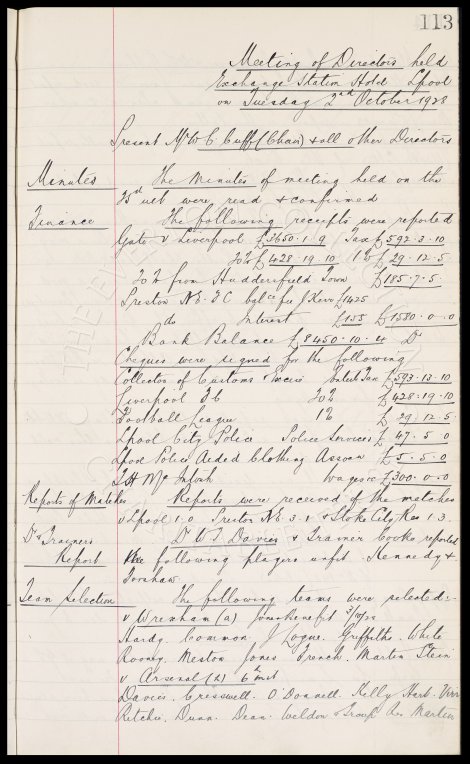 113
Meeting of Directors held
Exchange Station Hotel L'pool
on Tuesday 2nd October 1928
Present Mr W C Cuff (Chair) & all other Directors
Minutes The Minutes of meeting held on the
25th ult were read & confirmed
Finance The following receipts were reported
Gate v Liverpool £3650.1.9 Tax £592.3.10
20% £428.19.10 1% £29.12.5
20% from Huddersfield Town £185.7.5
Preston N.E. FC balce fee £1425
do Interest £155 £1580.0.0
Bank Balance £8450.10.4 Dr
Cheques were signed for the following
Collector of Customs & Excise Entert Tax £593.13.10
Liverpool FC 20% £428.19.10
Football League 1% £29.12.5
Lpool City Police Police Services £47.5.0
Lpool Police Aided Clothing Assocn £5.5.0
McIntosh wages &c £300.0.0
Reports of Matches Reports were received of the matches
v Lpool 1.0 Preston N.E. 3.1 & Stoke City Res 1.3.
Drs & Trainers Dr W. J. Davies & Trainer Cooke reported
Report the following players unfit. Kennedy &
Team Selection The following teams were selected:-
v Wrexham (a) Benefit 3/10/28
Hardy. Common. J Logue. Griffiths. White
Rooney. Meston Jones French. Martin Stein
v Arsenal (h) 6th inst
Davies. Cresswell. O'Donnell. Kelly Hart. Virr
Ritchie. Dunn. Dean. Weldon & Troup Res Martin